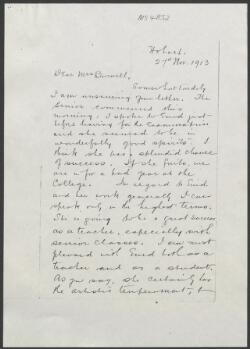 Hobart.
27 Nov. 1913
Dear Mrs
Somewhat tardily
I am answering your letter. The
Senior commenced this
morning. I spoke to Enid just
before leaving for the Examination
and she seemed to be in
wonderfully good spirits. I
think she has a splendid chance
of success. If she fails, we
are in for a bad year at the
College. In regard to Enid
and her work generally I can
speak only in the highest terms.
She is going to be a great success
as a teacher, especially with
senior classes. I am most
pleased with Enid both as a
teacher and as a student.
As you say, she certainly has
the artistic temperament, &